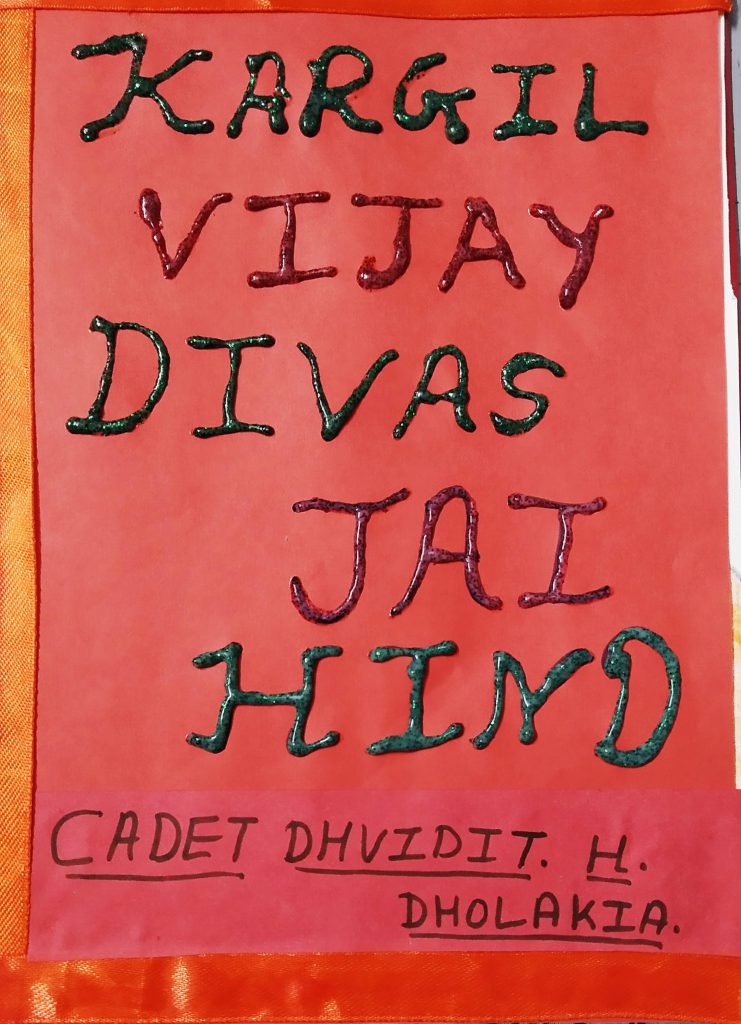 KARGIL
VIJAY
DIVAS
JAI
HIND
CADET DHVIDIT. H.
DHOLAKIA.